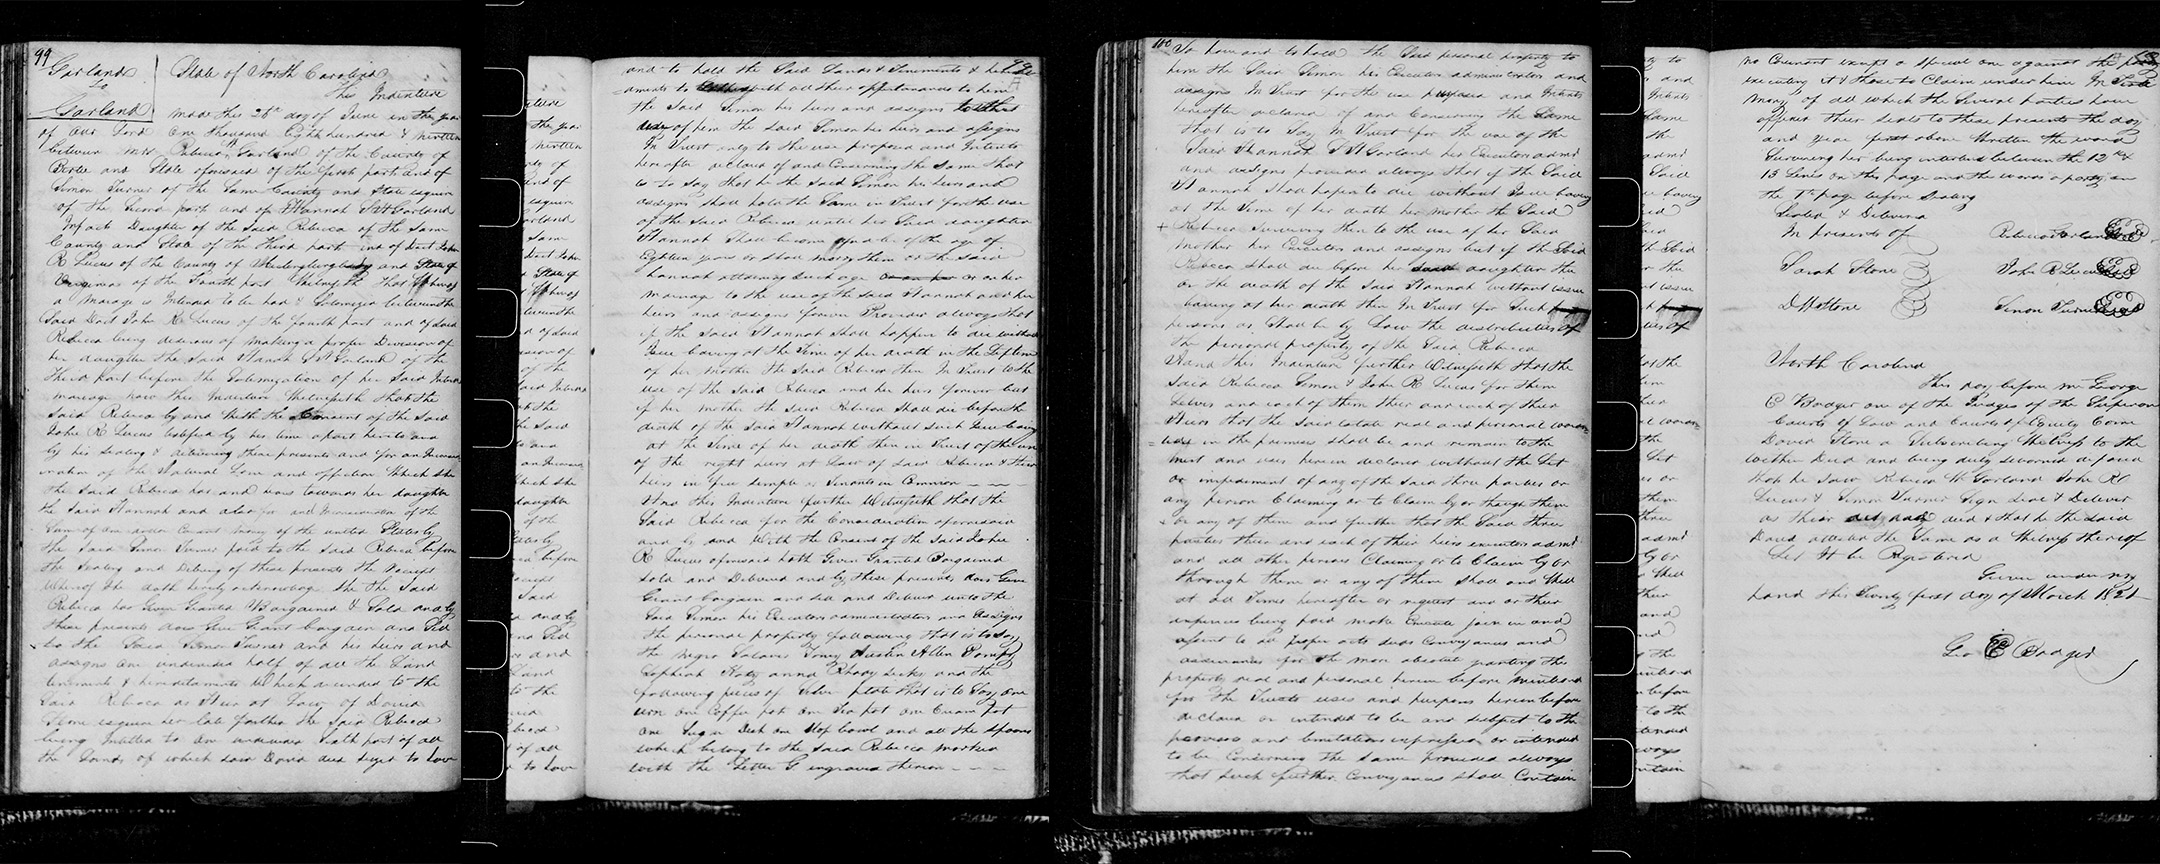 99
Garland
to
Garland
State of North Carolina
This Indenture
made this 28th day of June in the year
of our Lord One thousand Eighthundred &
between Mrs Rebecca W Garland of the County of
Bertie and State aforesaid of the first part and of
Simon Turner of the Same County and State esquire
of the Second part and of Hannah S W Garland
Infant Daughter of the said Rebecca of the Same
County and State of the third part and of Doct John
R Lucas of the County of and State of
of the Fourth part Witnesseth that
a Mariage is Intended to be had & Solemnized between the
Said Doct John R Lucas of the fourth part and of said
Rebecca being desirous of making a proper Division of
her daughter the said Hannah S W Garland of the
third part before the Solemnization of her Said Intend
mariage now this Indenture Witnesseth that the
Said Rebecca by and With the Consent of the Said
John R Lucas testified by his being a part hereto and
by his Sealing & delivering these presents and for an Inconsid
eration of the Natural Love and affection Which She
the said Rebecca has and bears towards her daughter
the Said Hannah and also for and Inconsideration of the
Sum of One dollar Current Money of the united States by
the Said Simon Turner paid to the Said Rebecca before
the Sealing and Delivery of these presents the Receipt
Whereof She doth hereby acknowledge She the Said
Rebecca has Given Granted Bargained & Sold and by
these presents does Give Grant bargain and Sell
to the Said Simon Turner and his heirs and
assigns One undivided half of all the Land
tenements & hereditaments Which decended to the
Said Rebecca as Heir at Law of David
Stone esquire her late father the Said Rebecca
being Intitled to One undivided Sixth part of all
the Lands of which said David died Seized to have
and to hold the Said Lands & Tenements & heredit
aments to with all other appurtenances to him
the Said Simon his heirs and assigns to the
use of him the said Simon his heirs and assigns
In Trust only to the use proposes and Intents
hereafter declared of and Concerning the Same that
is to Say that he the Said Simon his heirs and
assigns shall hold the Same in Trust for the use
of the Said Rebecca until her Said daughter
Hannah Shall become of the age of
Eighteen years or shall marry then or the said
hannah attaining Such age or on her
mariage to the use of the said Hannah and her
heirs and assigns forever Provided always that
if the said Hannah Shall happen to die without
Issue living at the Time of her death in the lifetime
of her Mother the Said Rebecca then In Trust to the
use of the Said Rebecca and her heirs forever but
if her Mother the Said Rebecca Shall die before the
death of the Said Hannah without Such Issue living
at the Time of her death then in Trust of the use
of the right heirs at Law of Said Rebecca & their
heirs in fee Simple as Tenants in Common
And this Indenture further Witnesseth that the
Said Rebecca for the Consideration aforesaid
and by and With the Consent of the Said John
R Lucas aforesaid hath Given Granted Bargained
Sold and Delivered and by these presents does Give
Grant bargain and Sell and Deliver unto the
Said Simon his Executors administrators and assigns
the personal property following that is to Say
the Negro Salaves Tony Austin Allen
Katy anna Rhody and the
following pieces of Silver plate that is to Say One
urn One Coffee pot One Tea pot One Cream pot
One Sugar Dish One Slop bowl and all the Spoons
which belong to the Said Rebecca marked
with the Letter G engraved thereon
100
To have and to hold the Said personal property to
him the Said Simon his Executors administrators and
assigns In Trust for the use purposes and Intents
hereafter declared of and Concerning the Same
that is to Say In Trust for the use of the
Said Hannah S W Garland her Executors admr
and assigns provided always that if the Said
Hannah Shall hapen to die without Issue living
at the Time of her death her Mother the Said
Rebecca Surviving then to the use of her Said
Mother her Executors and assigns but if the Said
Rebecca Shall die before her daughter the
on the death of the Said Hannah without issue
living at her death then In Trust for Such
persons as Shall be by Law the distributies of
the personal property of the Said Rebecca
And this Indenture further Witnesseth that the
Said Rebecca Simon & John R Lucas for them
Selves and each of them their and each of their
Heirs that the Said Estate real and personal
in the premises Shall be and remain to the
trust and uses herein declared without the Let
or impediment of any of the Said three parties or
any person Claiming or to Claim by or through them
or any of them and further that the Said three
parties their and each of their heirs executors admr
and all other persons Claiming or to Claim by or
through them or any of them Shall and Will
at all Times hereafter on request and on their
expences being paid make Execute join in and
assent to all proper acts deeds Conveyances and
assurances for the more absolute granting the
property real and personal herein before mentioned
for the Trusts uses and purposes herein before
declared or intended to be and subject to the
provisoes and limitations expressed or intended
to be Concerning the Same provided always
that such further Conveyances Shall Contain
no Covenant except a Special one against the party
executing it & those to Claim under him In Testi
mony of all which the Several parties have
affixed their seals to these presents the day
and year first above Written the word
Surviving her being interlined between the 12th &
13 Lines on this page and the words a party in
the 1st page before Sealing
Sealed & Delivered
In presents of
Rebecca Garland Seal
Sarah Stone
John R Lucas Seal
D W Stone
Simon Turner Seal
North Carolina
This day before me George
E Badger one of the Judges of the Superior
Courts of Law and Courts of Equity Come
David Stone a Subscribing Witness to the
within Deed and being duly Sworned deposed
that he Saw Rebecca W Garland John R
Lucas & Simon Turner Sign Seal & Deliver
as their deed & that he the said
David attested the Same as a Witness thereof
Let It be Registered
Given under my
hand this Twenty first day of March 1821
Geo E Badger